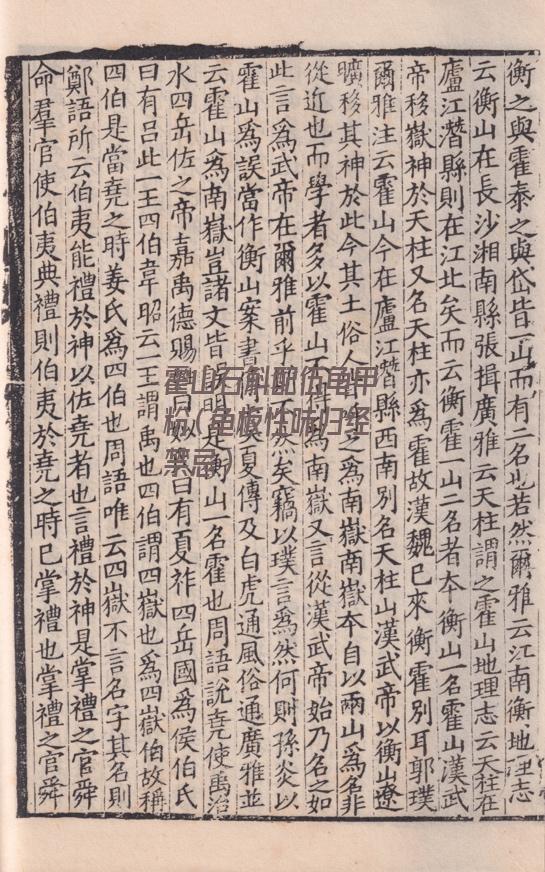 衡之與霍泰之與岱皆一山而有二名也若然爾雅云江南衡地理志
云衡山在長沙湘南縣張揖廣雅云天柱謂之霍山地理志云天柱在
廬江潛縣則在江北矣而云衡霍一山二名者本衡山一名霍山漢武
帝移嶽神於天柱又名天柱亦爲霍故漢魏已來衡霍別耳郭璞
爾雅注云霍山今在廬江潛縣西南別名天柱山漢武帝以衡山遼
曠移其神於此今其土俗人皆呼之爲南嶽南嶽本自以兩山爲名非
從近也而學者多以霍山不得爲南嶽又言從漢武帝始乃名之如
此言爲武帝在爾雅前乎不然矣竊以璞言爲然何則孫炎以
霍山爲誤當作衡山案書夏傳及白虎通風俗通廣雅並
云霍山爲南嶽豈諸文皆誤明是衡山一名霍也周語說堯使禹治
水四岳佐之帝嘉禹德賜姓曰姒曰有夏祚四岳國爲侯伯氏
曰有呂此一王四伯韋昭云一王謂禹也四伯謂四嶽也爲四嶽伯故稱
四伯是當堯之時姜氏爲四伯也周語唯云四嶽不言名字其名則
鄭語所云伯夷能禮於神以佐堯者也言禮於神是掌禮之官舜
命羣官使伯夷典禮則伯夷於堯之時已掌禮也掌禮之官舜
霍山石斛配伍龟甲
粉(龟板性味归经
禁忌)